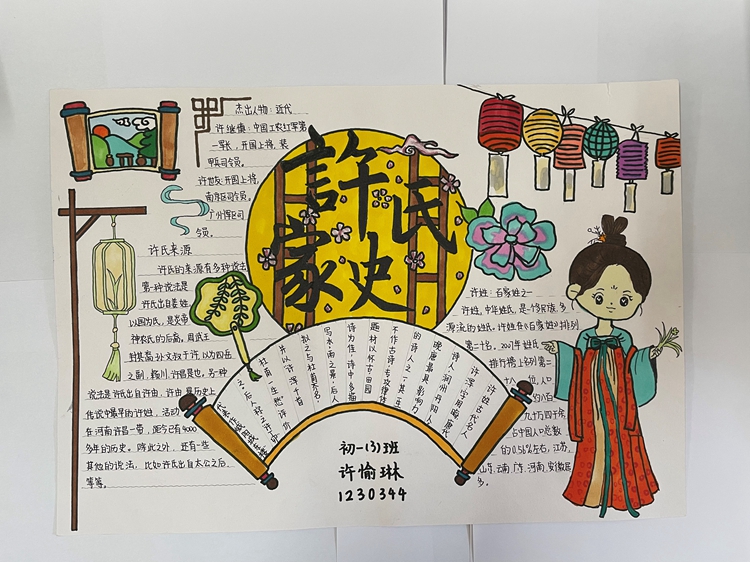 許氏
家史
杰出人物：近代
许继慎：中国工农红军第
一军长，开国上将，装
甲兵司令员。
许世友：开国上将，
南京军区司令员。
广州军区司
令员。
许氏来源
许氏的来源有多种说法
第一种说法是
许氏出自姜姓，
以国为氏，是炎帝
神农氏的后裔，周武王
封其裔孙文叔于许，以为四岳
之嗣，颖川、许昌是也，另一种
说法是许氏出自许由，许由是历史上
传说中最早的许姓，活动
在河南许昌一带，距今已有4000
多年的历史。除此之外，还有一些
其他的说法，比如许氏出自太公之后，
等等。
许姓古代名人
许浑，字用晦，唐代
诗人，润州丹阳人，
晚唐最具影响力
的诗人之一，其一生
不作古诗，专攻律体；
题材以怀古、田园
诗为佳，诗中多描
写水、雨之景，后人
拟之与杜甫齐名，
并以“许浑千首
许姓：百家姓之一
许姓，中华姓氏，是一个多民族，多
源流的姓氏，许姓在《百家姓》排列
第二十名，2017年姓氏
排行榜上列第二
十八位，人口
约八百
九十万四千余，
占中国人口总数
的0.56%左右，江苏，
山东，云南，广东，河南，安徽居
多。
初一(3)班
许愉琳
1230344